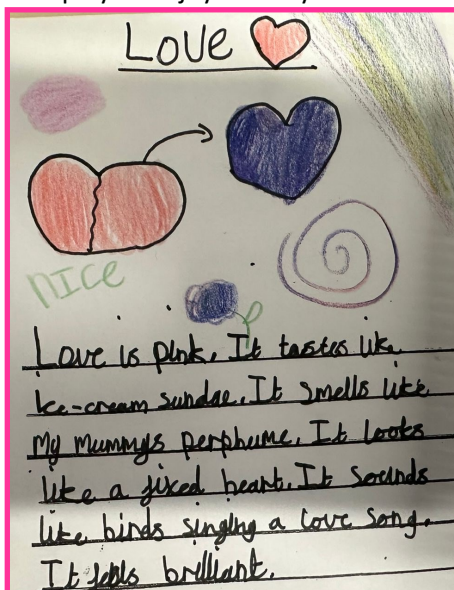 Love
nice
Love is pink. It tastes like
Ice-cream sundae. It smells like
my mummys perphume. It looks
like a fixed heart. It sounds
like birds singing a love song.
It feels brilliant.